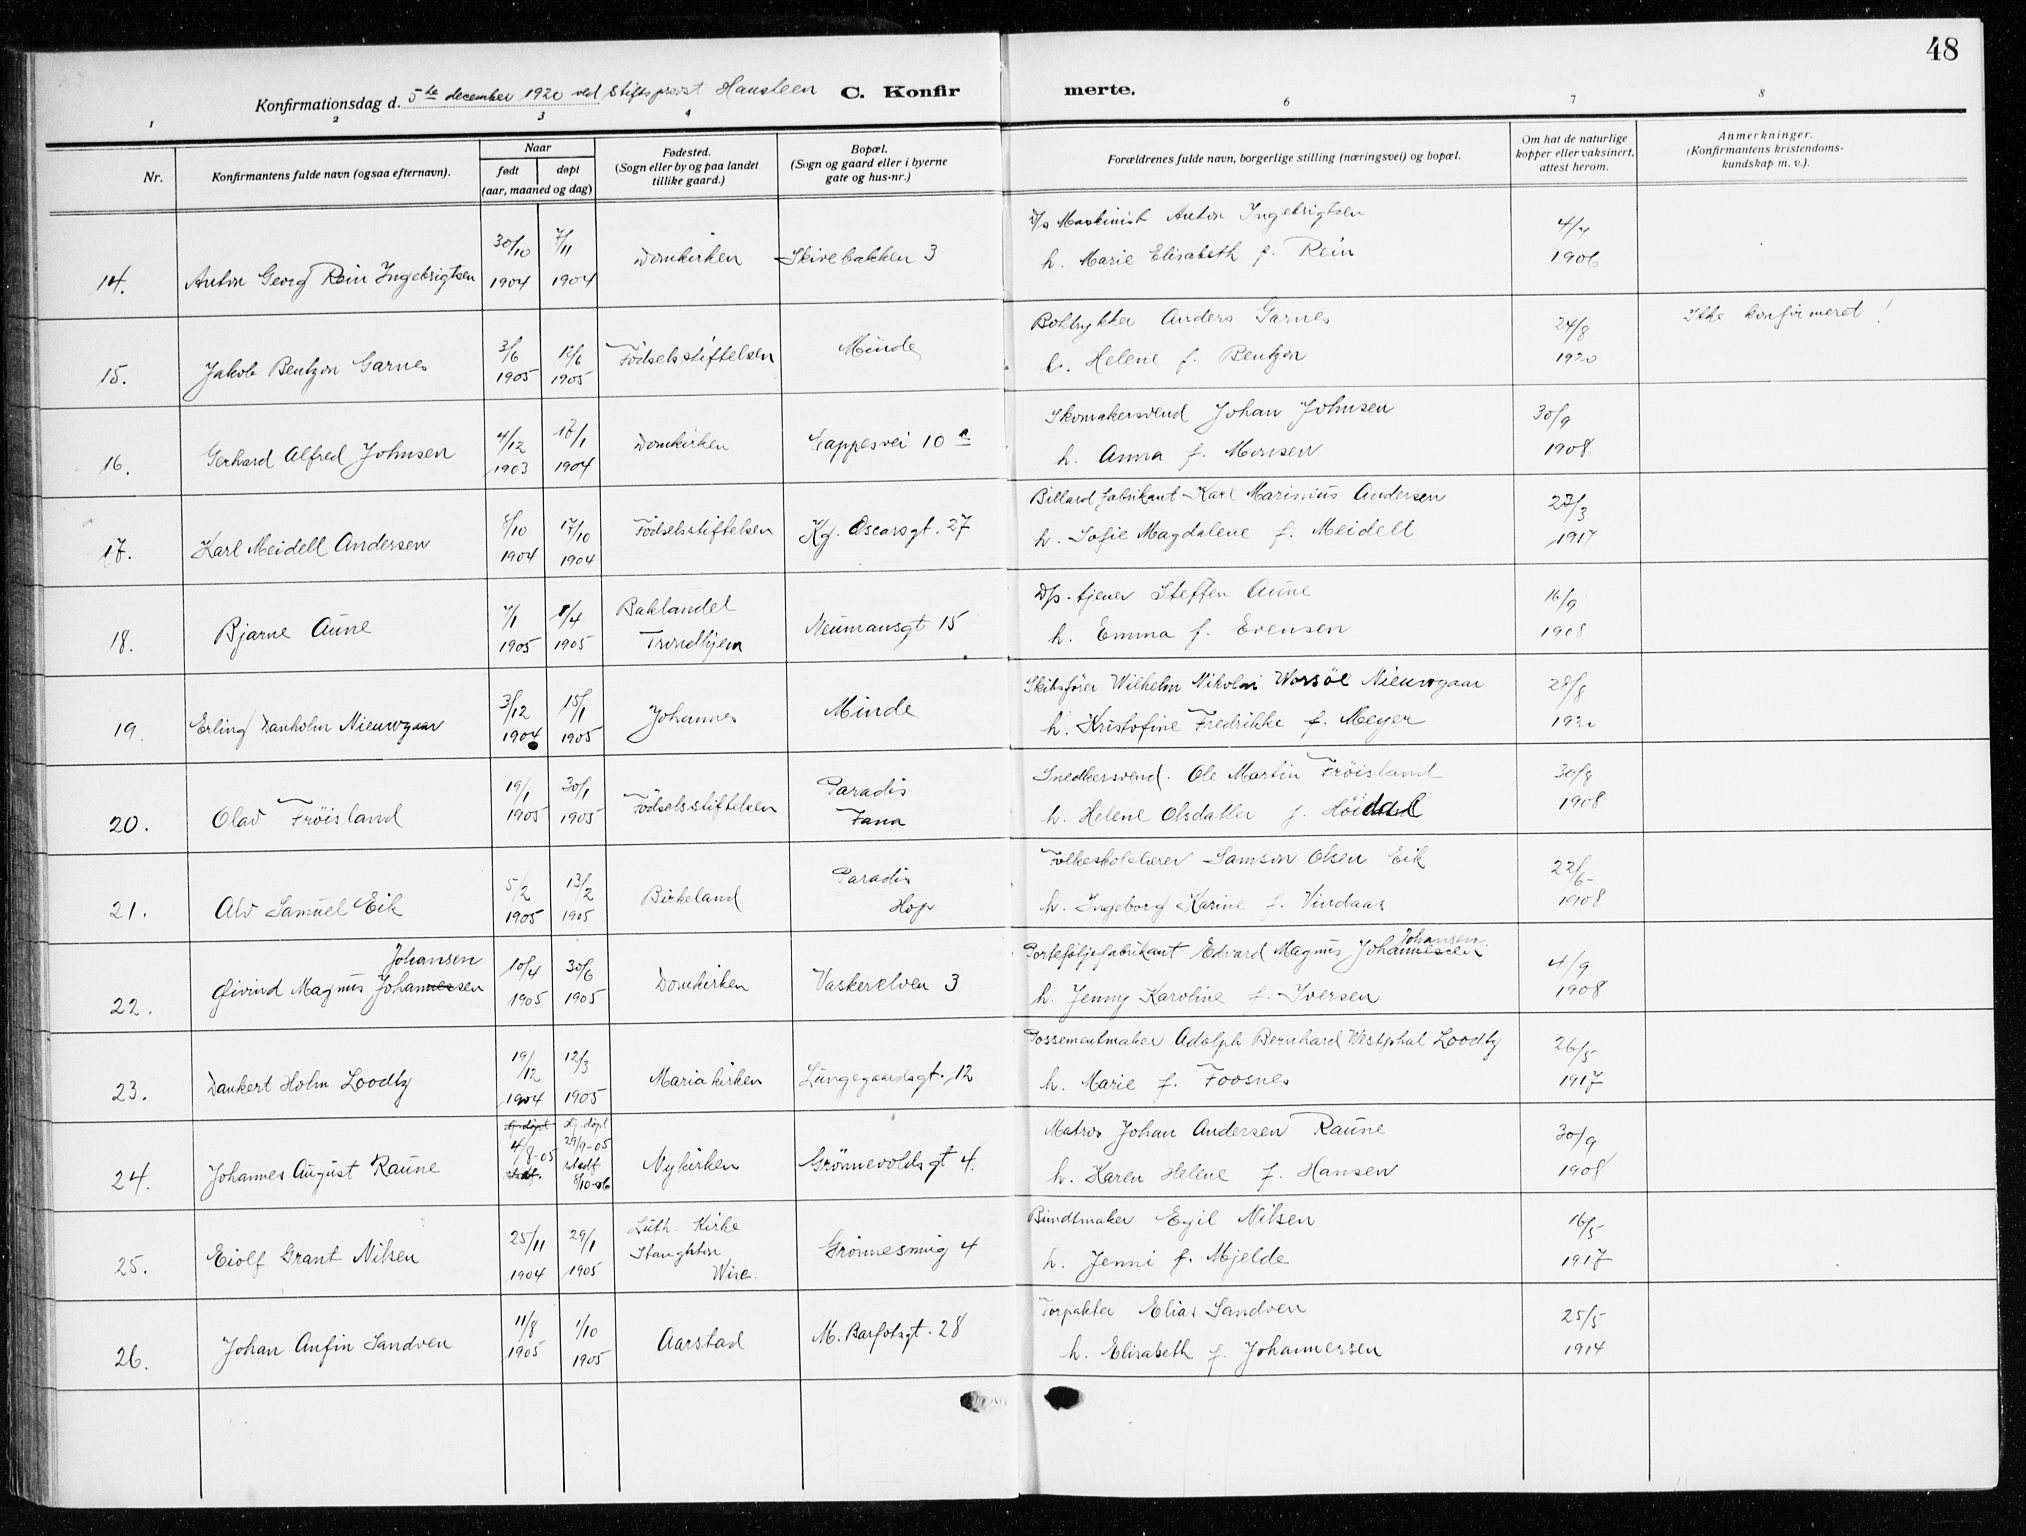 48
Konfirmationsdag d. 5te december 1920 ved Stiftsprovst Hansteen C. Konfirmerte.
1 2 3 4 6 7 8
Nr.
Konfirmantens fulde navn (ogsaa efternavn).
Naar
født døpt
(aar, maaned og dag)
Fødested.
(Sogn eller by og paa landet
tillike gaard.)
Bopæl.
(Sogn og gaard eller i byerne
gate og hus-nr.)
Forældrenes fulde navn, borgerlige stilling (næringsvei) og bopæl.
Om hat de naturlige
kopper eller vaksinert,
attest herom.
Anmerkninger.
(Konfirmantens kristendoms-
kundskap m. v.).
14. Anton Georg Rein Ingebrigtsen 30/10 1904 7/11 1904 Domkirken Skivebakken 3
D/s Maskinist Anton Ingebrigtsen 4/4
h. Marie Elisabeth f. Rein 1906
15. Jakob Bentzon Garnes 3/6 1905 12/6 1905 Födselsstiftelsen Minde
Boktrykker Anders Garnes 24/8 Ikke konfirmeret!
h. Helene f. Bentzon 1920
16. Gerhard Alfred Johnsen 4/12 1903 17/1 1904 Domkirken Cappesvei 10 a
Skomakersvend Johan Johnsen 30/9
h. Anna f. Monsen 1908
17. Karl Meidell Andersen 8/10 1904 17/10 1904 Födselsstiftelsen Kg. Oscarsgt. 27
Billardfabrikant Karl Marinius Andersen 27/3
h. Sofie Magdalene f. Meidell 1917
18. Bjarne Aune 7/1 1905 1/4 1905 Baklandet Trondhjem Neumansgt 15
D/s. tjener Steffen Aune 16/9
h. Emma f. Evensen 1908
19. Erling Danholm Nieuwgaar 3/12 1904 15/1 1905 Johannes Minde
Skibsfører Wilhelm Nikolai Worsöe Nieuwgaar 28/8
h. Kristofine Fredrikke f. Meyer 1920
20. Olav Fröisland 19/1 1905 30/1 1905 Födselsstiftelsen Paradis Fana
Snedkersvend. Ole Martin Fröisland 30/8
h. Helene Olsdatter f. Höidal 1908
21. Alv Samuel Eik 5/2 1905 13/2 1905 Birkeland Paradis Hop
Folkeskolelærer Samson Olsen Eik 22/6
h. Ingeborg Karine f. Vindaas 1908
22. Øivind Magnus Johannessen Johansen 10/4 1905 30/6 1905 Domkirken Vaskerelven 3
Porteföljefabrikant Edvard Magnus Johannessen Johansen 4/9
h. Jenny Karoline f. Iversen 1908
23. Dankert Holm Loodtz 19/12 1904 12/3 1905 Mariakirken Lungegaardsgt. 12
Possementmaker Adolph Bernhard Westphal Loodtz 26/5
h. Marie f. Foosnes 1917
24. Johannes August Raune hj. døpt 4/8-05 stadf. hj. døpt 29/9-05 stadf 8/10-06 Nykirken Grönnevoldsgt 4.
Matros Johan Andersen Raune 30/9
h. Karen Helene f. Hansen 1908
25. Eiolf Grant Nilsen 25/11 1904 29/1 1905 Luth. Kirke Staughton Wisc. Grönnesmug 4
Bundtmaker Egil Nilsen 16/5
h. Jenni f. Mjelde 1917
26. Johan Anfin Sandven 11/8 1905 1/10 1905 Aarstad M. Barfotsgt. 28
Torpakter Elias Sandven 25/5
h. Elisabeth f. Johannessen 1914